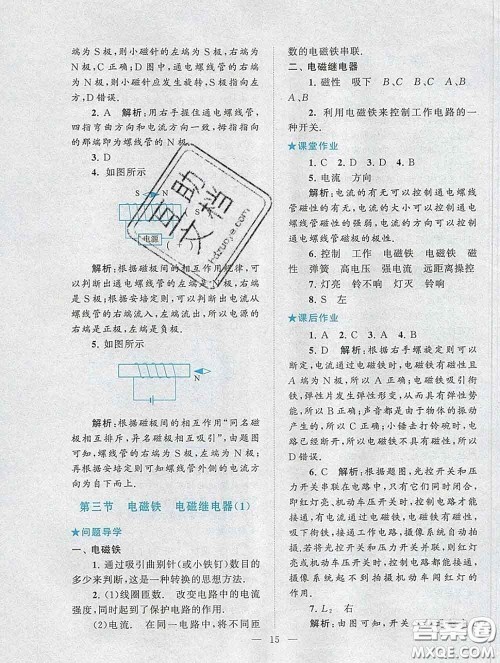 端为 S 极，则小磁针的左端为 S 极，右端为
N 极，C 正确；D 图中，通电螺线管的右端
为 N 极，则小磁针应发生旋转，S 极指向
右方，D 错误.
2. A　解析：用右手握住通电螺线管，
四指弯曲方向和电流方向一致，拇指指向
的那端即为螺线管的 N 极.
3. D
4. 如图所示
S
N
S
电源
解析：根据磁极间的相互作用规律，可
以判断出通电螺线管的右端是 N 极，左端
是 S 极；根据安培定则，可以判断出电流从
螺线管的右端流入，左端流出，所以电源的
右端是正极，左端是负极.
5. 如图所示
N
解析：根据磁极间的相互作用“同名磁
极相互排斥，异名磁极相互吸引”，由题图
可知，螺线管的右端为 S 极，左端为 N 极；
根据安培定则可知螺线管外侧的电流方
向为方向向下.
第三节　电磁铁　电磁继电器(1)
★问题导学
一、电磁铁
1. 通过吸引曲别针(或小铁钉)数目的
多少来判断，这是一种转换的思想方法.
2. (1)线圈匝数　改变电路中的电流
强度，同时起到了保护电路的作用.
(2)电流.　在同一电路中，将不同匝
数的电磁铁串联.
二、电磁继电器
1. 磁性　吸下　B、C　B、C　A、D
A、D
2. 利用电磁铁来控制工作电路的一
种开关.
★课堂作业
1. C　2. D　3. A　4. B
5. 电流　方向
解析：电流的有无可以控制通电螺线
管磁性的有无，电流的大小可以控制通电
螺线管磁性的强弱，电流的方向可以控制
通电螺线管磁极的极性.
6. 控制　工作　电磁铁　电磁铁　磁
性　弹簧　高电压　强电流　远距离操控
7. 灯亮　铃响　灯灭　铃响
8. S　左
★课后作业
1. A　2. C　3. A　4. B
5. D　解析：根据右手螺旋定则可以
判断，电流通过电铃时，电磁铁有磁性且
A 端为 N 极，所以 A 正确；电磁铁吸引衔
铁，弹性片发生弹性形变，具有弹性势能，
所以 B 正确；声音都是由于物体的振动产
生的，所以 C 正确；小锤击打铃碗时，电
路已经断开，所以电磁铁没有磁性，所以
D 错误.
6. C　解析：根据题图，光控开关和压
力开关共同控制电磁继电器的控制电路，
只有它们同时闭合时，控制电路才能接通，
即红灯亮、机动车压开关时，控制电路才能
接通，有电流通过电磁铁，电磁铁有磁性，
吸引衔铁，动触点接通，摄像系统自动拍
摄.若将光控开关和压力开关并联，只要红
灯亮或机动车压开关时，控制电路就接通，
有电流通过电磁铁，电磁铁都能有磁性，
摄像系统不能起到拍摄机动车闯红灯的
作用.
7. L₂　右
解析：由图可知，开关开时，控制电
15
自助文档
hdzuoye.com
答案圈
MXQE.COM